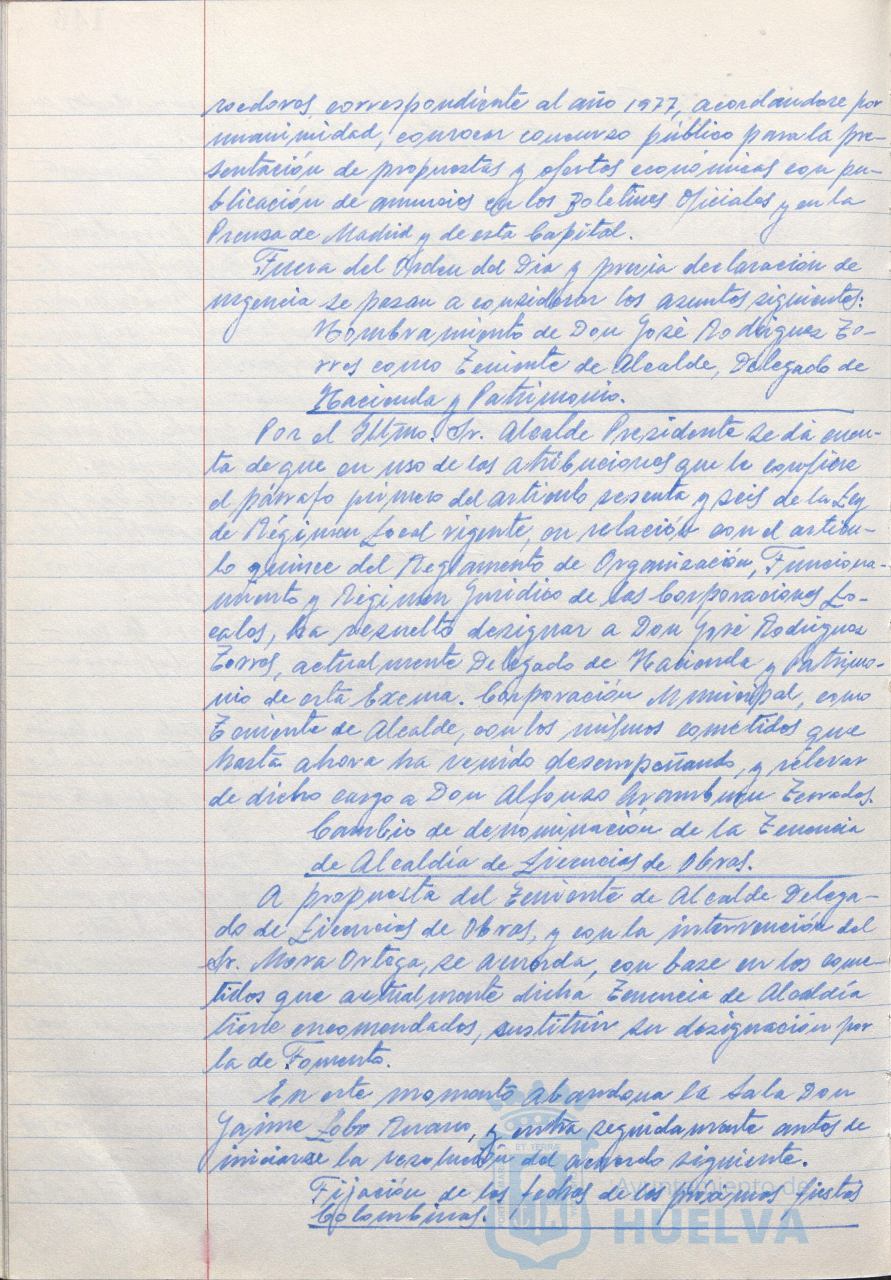 rcedores, correspondiente al año 1977, acordándose por
unanimidad, convocar concurso público para la pre-
sentación de propuestas y ofertas económicas con pu-
blicación de anuncios en los Boletines Oficiales y en la
Prensa de Madrid y de esta Capital.
Fuera del Orden del Dia y previa declaración de
urgencia se pasan a considerar los asuntos siguientes:
Nombramiento de Don José Rodríguez To-
rres como Teniente de Alcalde, Delegado de
Hacienda y Patrimonio.
Por el Iltmo. Sr. Alcalde Presidente se dá cuen-
ta de que en uso de las atribuciones que le confiere
el párrafo primero del articulo sesenta y seis de la Ley
de Régimen Local vigente, en relación con el articu-
lo quince del Reglamento de Organización, Funciona-
miento y Régimen Jurídico de las Corporaciones Lo-
cales, ha resuelto designar a Don José Rodríguez
Torres, actualmente Delegado de Hacienda y Patrimo-
nio de esta Excma. Corporación Municipal, como
Teniente de Alcalde, con los mismos cometidos que
hasta ahora ha venido desempeñando, y relevar
de dicho cargo a Don Alfonso Aramburu Terrades.
Cambio de denominación de la Tenencia
de Alcaldía de Licencias de Obras.
A propuesta del Teniente de Alcalde Delega-
do de Licencias de Obras, y con la intervención del
Sr. Mora Ortega, se acuerda, con base en los come-
tidos que actualmente dicha Tenencia de Alcaldía
tiene encomendados, sustituir su designación por
la de Fomento.
En este momento abandona la Sala Don
Jaime Lobo y entra seguidamente antes de
iniciarse la resolución del acuerdo siguiente.
Fijación de las fechas de las próximas fiestas
Colombinas.
Ayuntamiento de
HUELVA